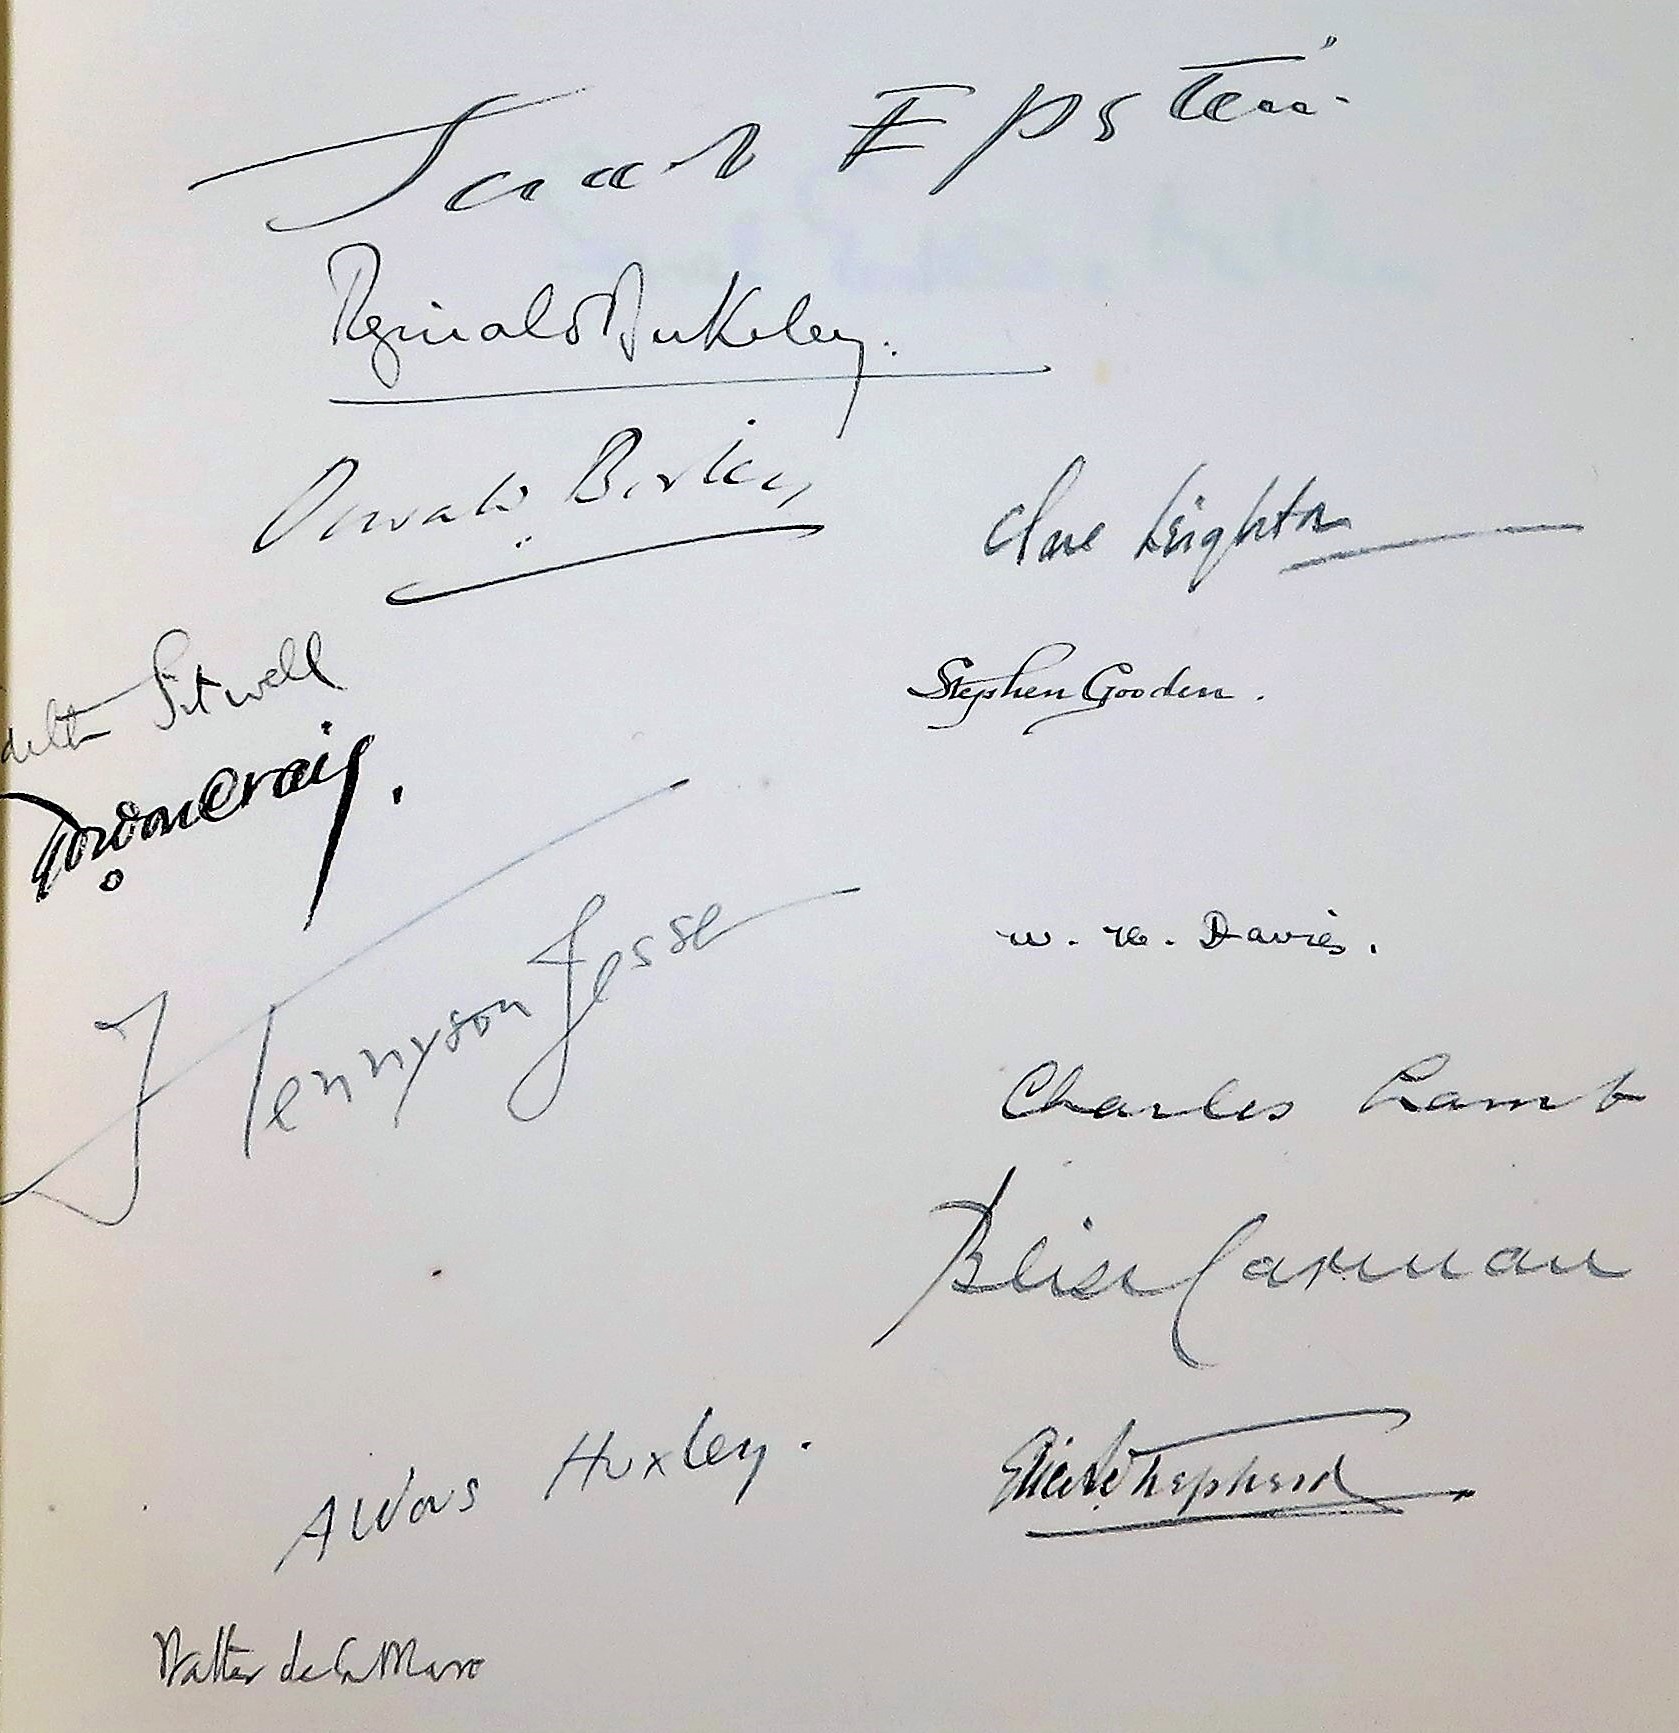 Jacob Epstein
Reginald Berkeley.
Oswald Birley
Clare Leighton
Sitwell
Stephen Gooden.
Gordon Craig.
F Tennyson Jesse
W. H. Davies.
Charles Lamb
Bliss Carman
Aldous Huxley.
Shepherd
Walter de la Mare